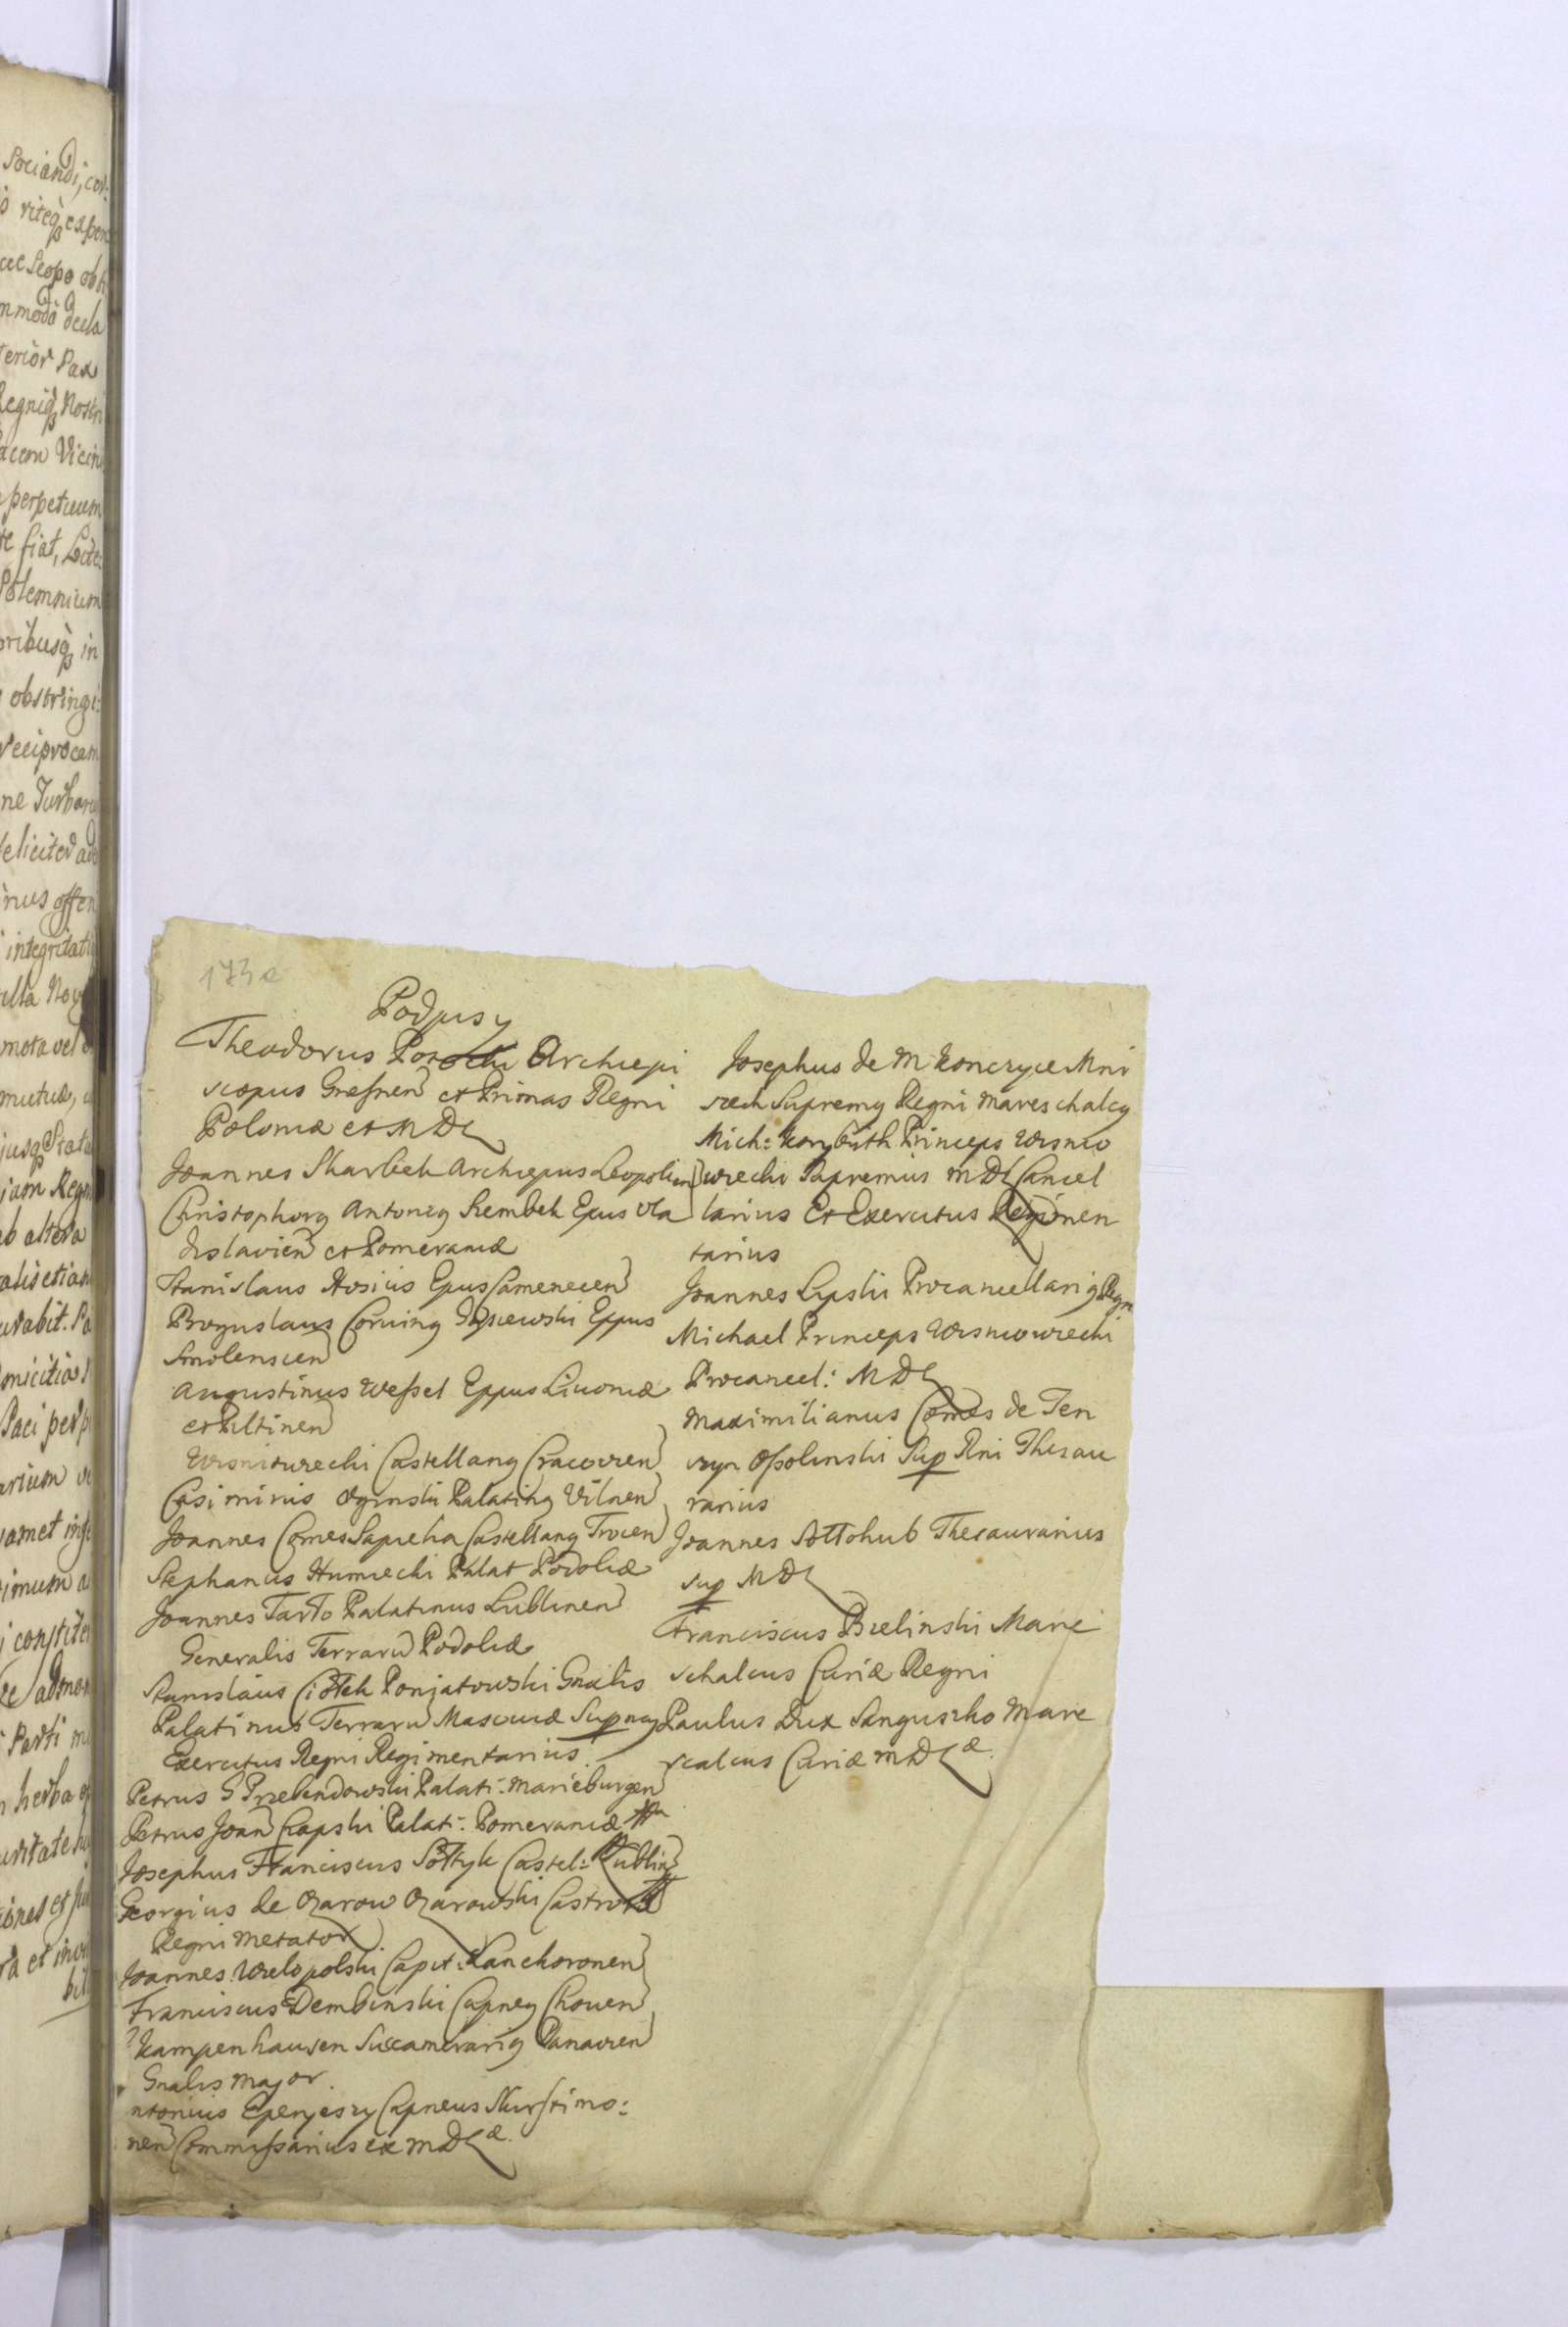 Sociandi, cor-
riteq́ expen
Scopo obti
mmodò decla
terior Pax
Regniq́ Nostri
acem Vicin
perpetuum
fiat, Lite
Solemnium
oribusq́ in
obstringi:
reciprocam
ne Turbare
feliciter
nus offen
integritati
mota vel
mutuæ,
jam Regn
ab altera
etiam
Paci perp
amet
imum
constite
admon
Parti
herba
et
bit
173a
Podpisy
Theodorus Potocki Archiepi
scopus Gnesnen et Primas Regni
Poloniæ et MDL
Joannes Skarbek Archiepus Leopolien
Christophorg Antonig Szembek Epus Vla
dislavien et Pomeraniæ
Stanislaus Hosius Epus Camenecen
Boguslaus Corving Gąsiewski Eppus
Smolenscen
Augustinus Wessel Eppus Livoniæ
et Piltinen
Wisniowiecki Castellang Cracovien
Casimirus Oginski Palating Vilnen
Joannes Comes Sapieha Castellang Trocen
Stephanus Humiecki Palat Podoliæ
Joannes Tarło Palatinus Lublinen
Generalis Terraru Podoliæ
Stanislaus Ciołek Poniatowski Gnalis
Palatinus Terraru Masoviæ Supmg
Exercitus Regni Regimentarius.
Petrus G Przebendowski Palati: Marieburgen
Petrus Joan Czapski Palati: Pomeraniæ
Josephus Franciscus Sołtyk Castel: Lublin
Georgius de Ozarow Ozarowski Castror
Regni Metator
Joannes Wielopolski Capit: Lanckoronen
Franciscus Dembinski Capneg Chouen
Kampenhausen Succamerarig Parnavien
Gnalis Major.
ntonius Eperjeszy Capneus Sturstino:
nen Commissarius ex MDLæ.
Josephus de M Konczyce Mni
szech Supremg Regni Mareschalcg
Mich: Korybuth Princeps Wisnio
wiecki Supremus MDL Cancel
larius Et Exercitus Regimen
tarius
Joannes Lipski Procancellarig Regn
Michael Princeps Wisniowiecki
Procancel: MDL
Maximilianus Comes de Ten
czyn Ossolinski Sup Rni Thesau
rarius
Joannes Sołłohub Thesaurarius
sup MDL
Franciscus Bielinski Mare
schalcus Curiæ Regni
Paulus Dux Sanguszko Mare
scalcus Curiæ MDLæ.